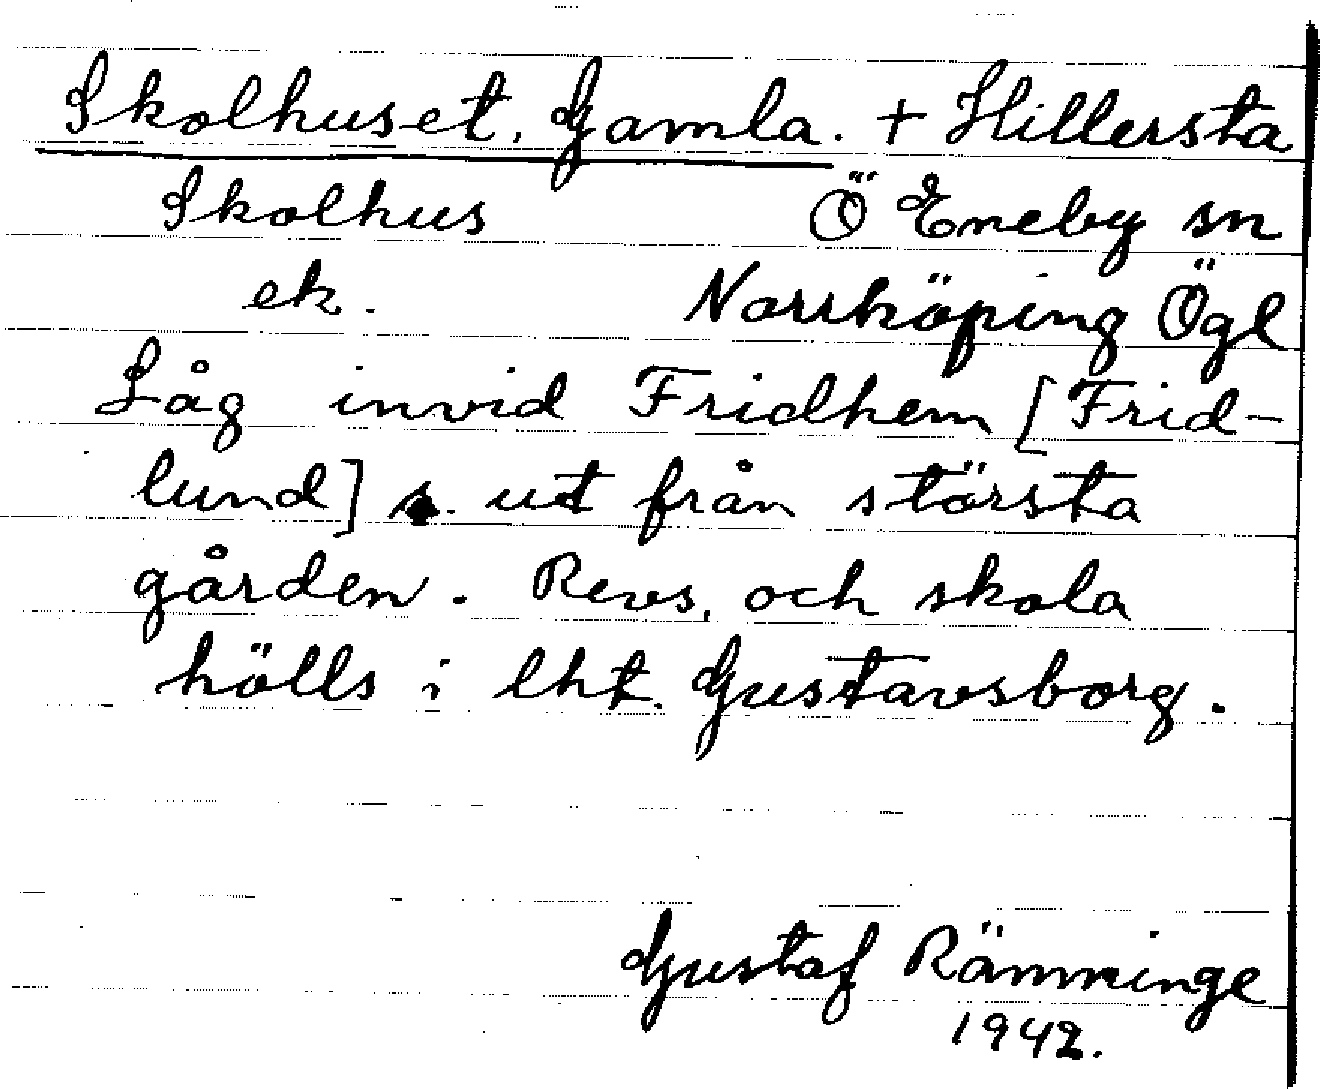 Skolhuset, Gamla. + Hillersta
Skolhus Ö Eneby sn
ek. Norrköping Ögl
Låg invid Fridhem [Frid-
lund] s. ut från största
gården. Revs, och skola
hölls i lht. Gustavsborg.
Gustaf Ränninge
1942.